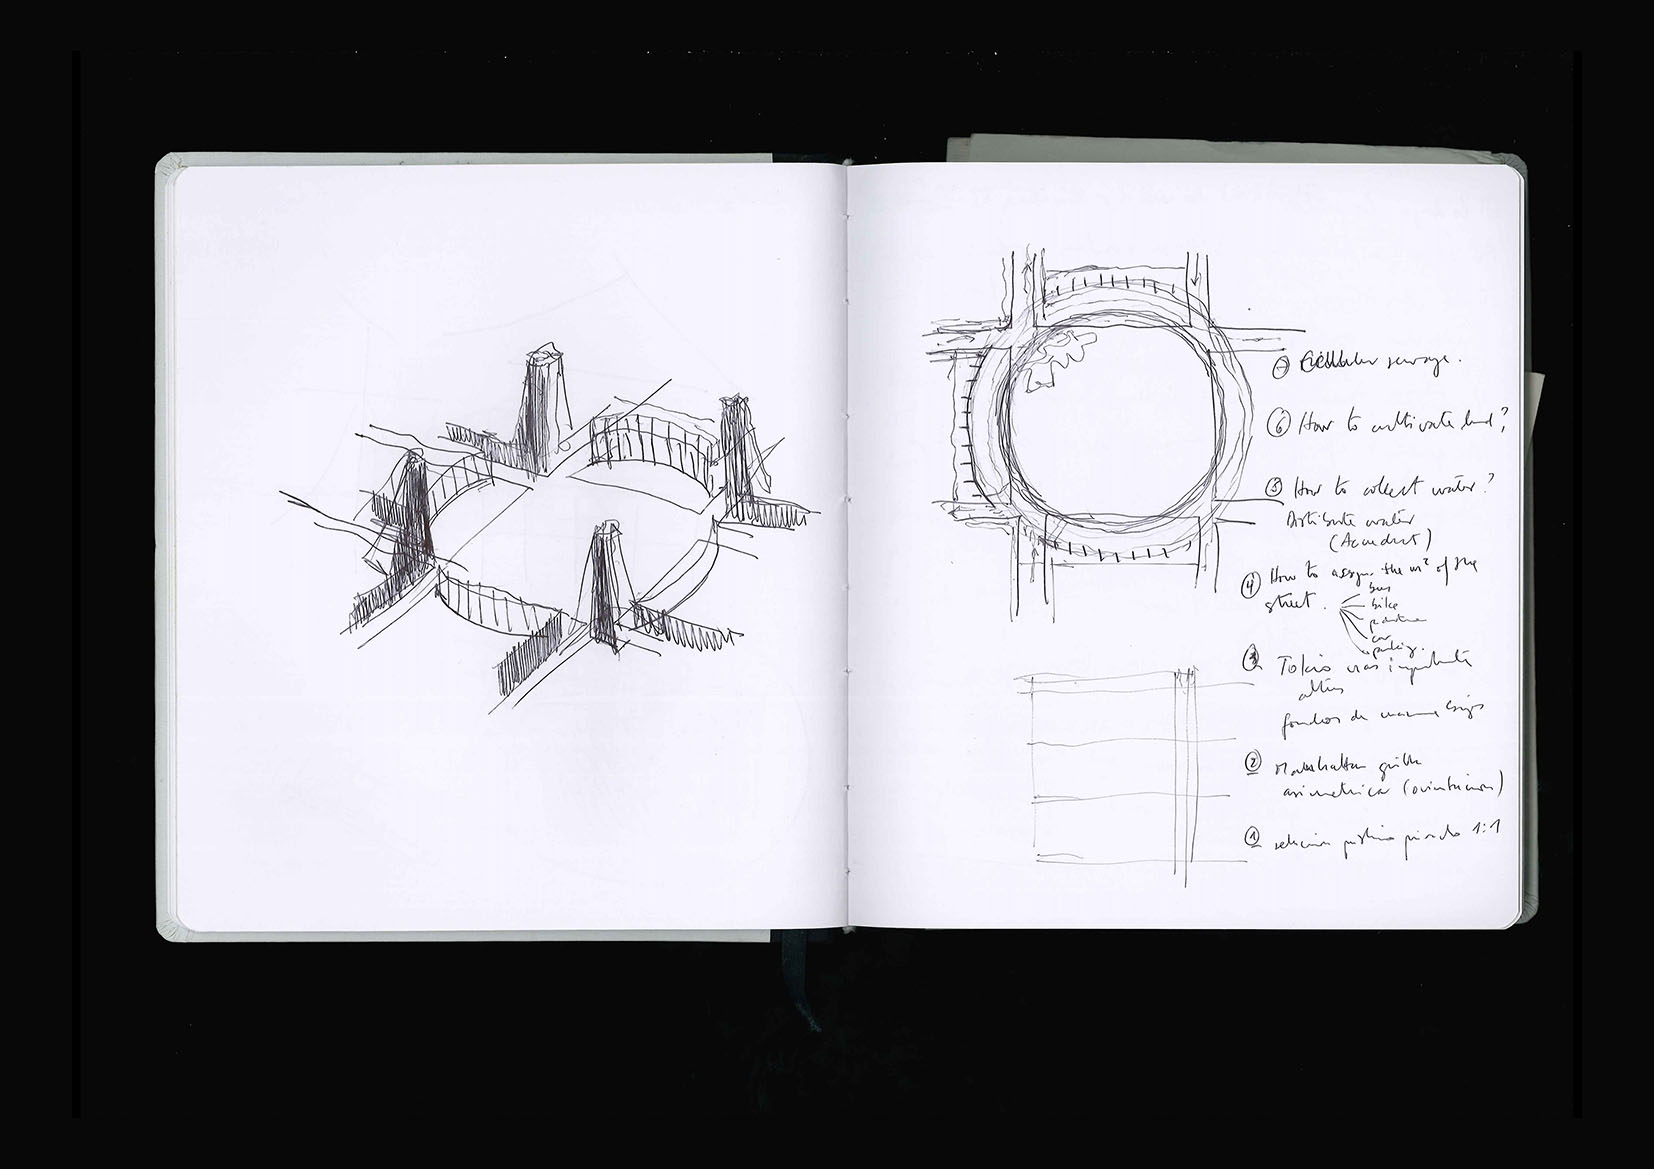 ⑦ sewage.
⑥ How to cultivate land?
⑤ How to collect water?
Distribute water
(Acueduct)
④ How to assign the m² of the
street.
bus
bike
car
parking.
③ Tokio vias importantes
altas
fondos de manzana bajos
② Manhattan grilla
asimetrica (orientacion)
① relacion 1:1